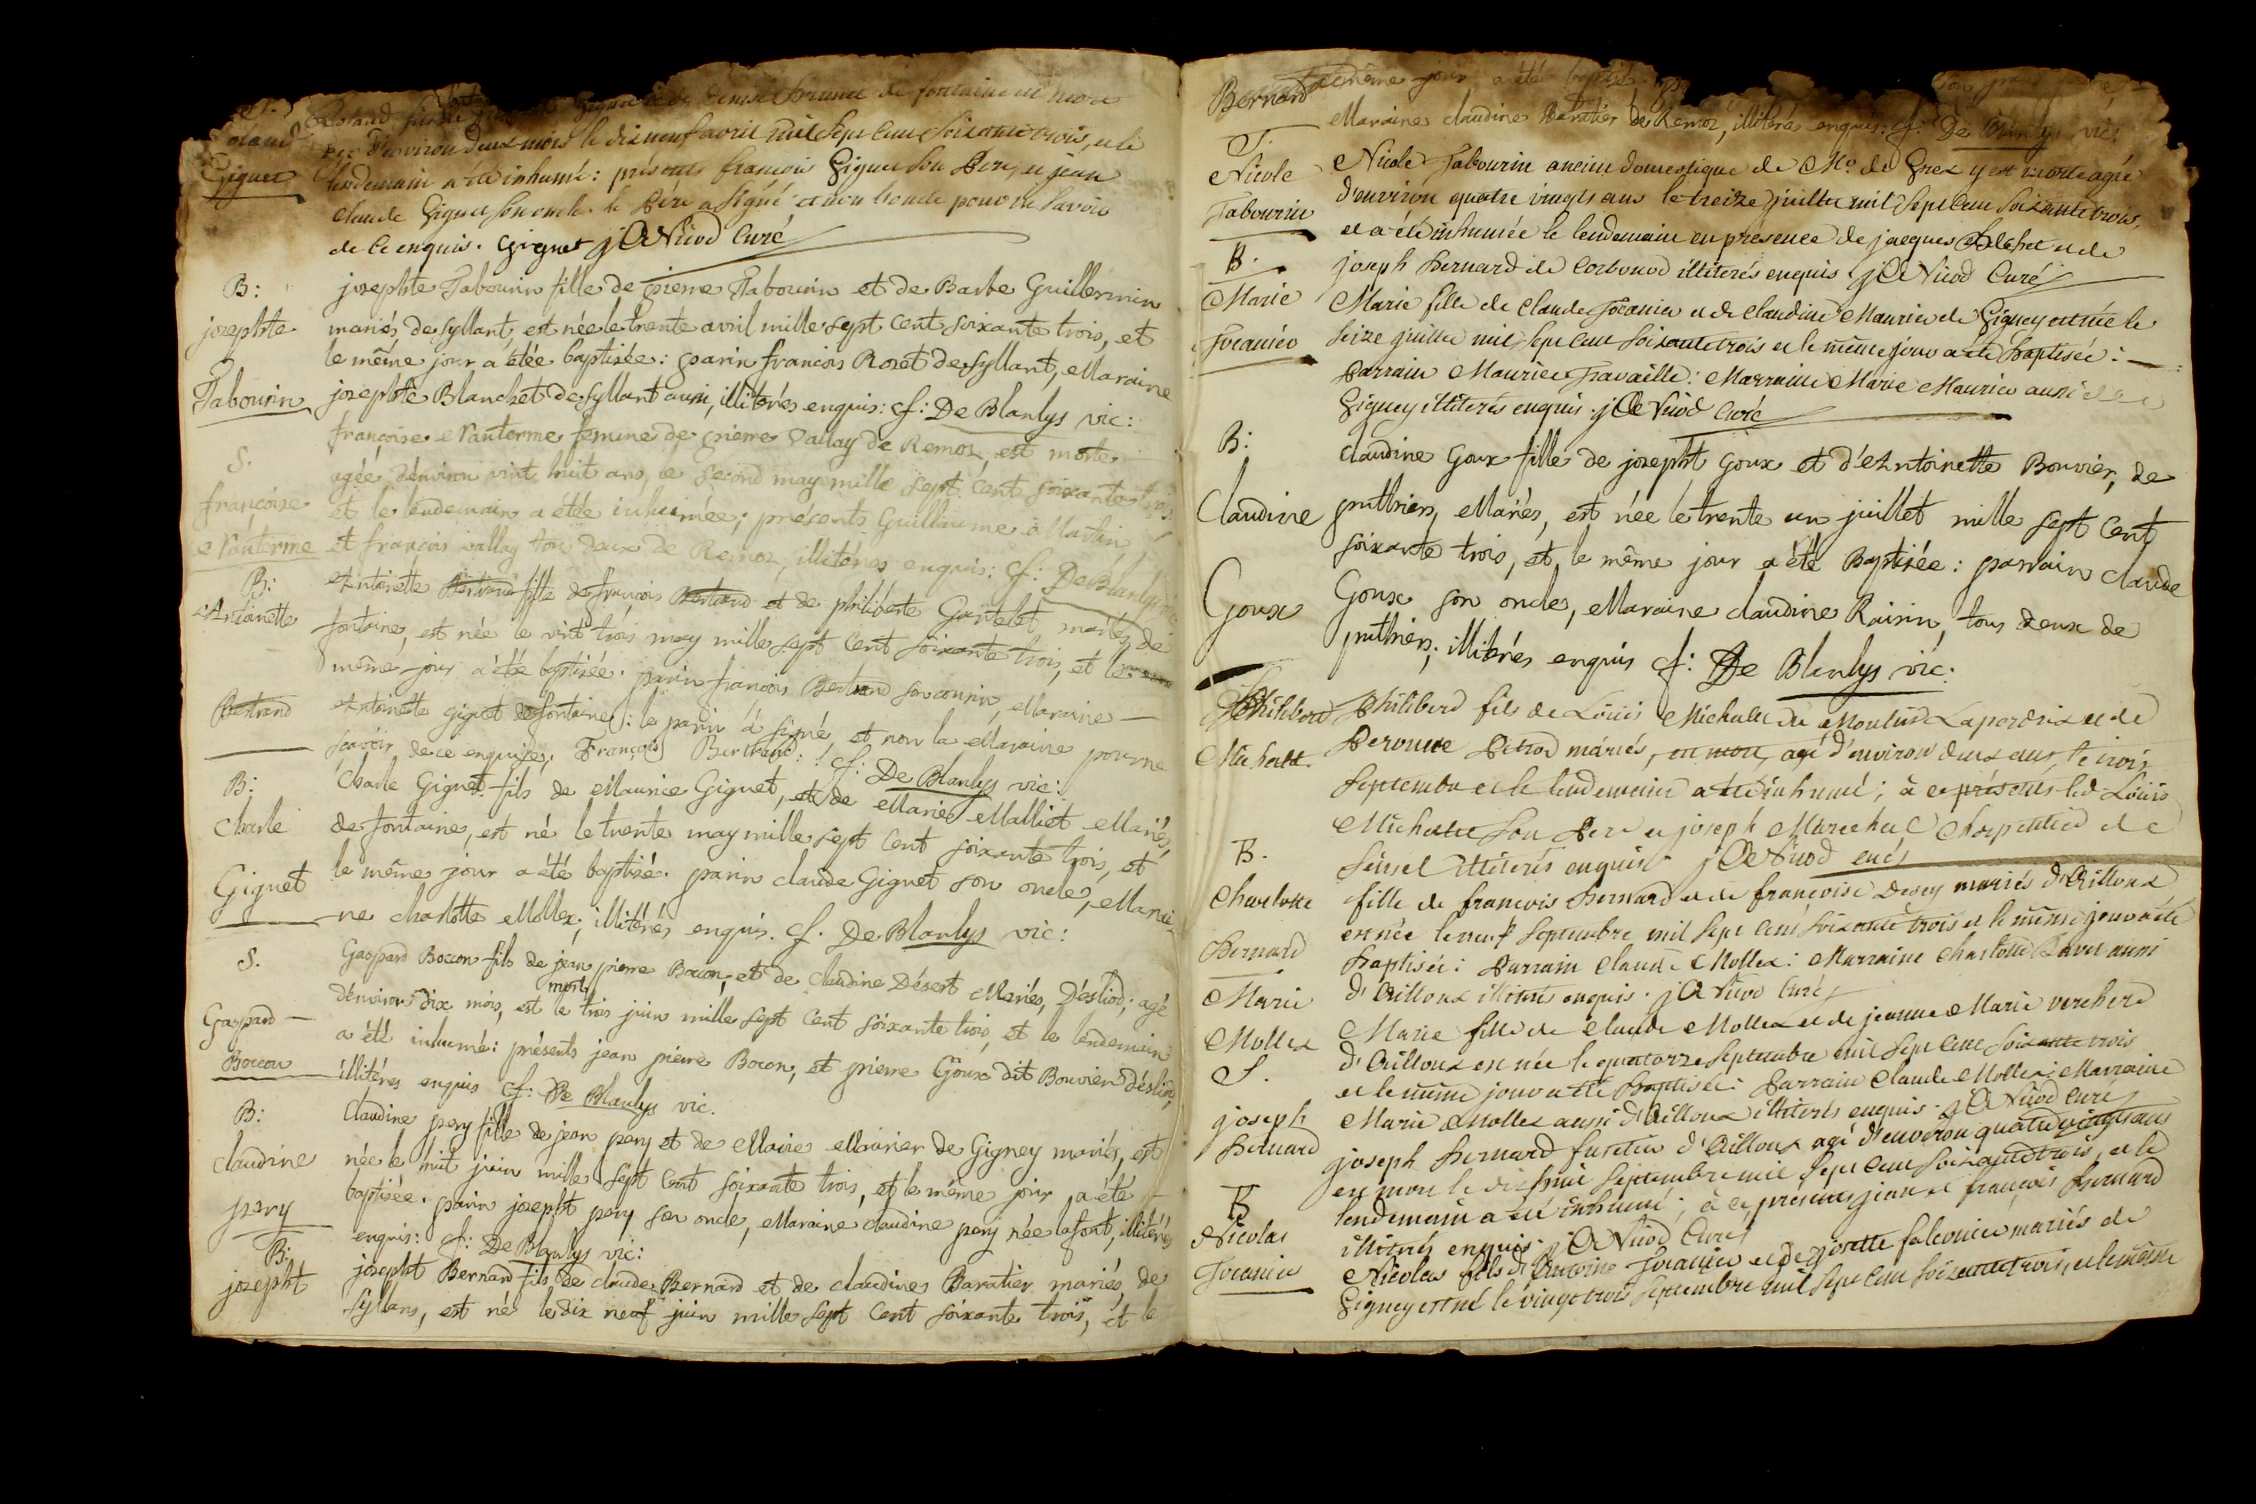 de fontaine est mort
d'environ deux mois le dix neuf avril mil sept cent soixante trois, et le
Giguet
lendemain a été inhumé: présents françois Giguet son Pere, et jean
claude Giguet son oncle. le Pére a signé et non l'oncle pour ne savoir
de ce enquis. Giguet Nicod Curé
B:
josephte
Tabourin
josephte Tabourin fille de pierre Tabourin et de Barbe Guillermin
mariés de syllant, est née le trente avril mille sept cent soixante trois, et
le même jour a étée baptisée: parin francois Roset de syllant, Maraine
josephte Blanchet de syllant aussi, illiterés enquis: f: De Blanlys vic:
S.
françoise
Vanterme
françoise Vanterme femme de pierre Vallay de Remoz, est morte
agée d'environ vint huit ans, ce second may mille sept cent soixante trois,
et le lendemain a étée inhumée; présents Guilliaume à Martin,
et francois vallay tou deux de Remoz, illitérés enquis: f: De Blanlys vic
B:
Antoinette
Bertrand
Antoinette Bertrand fille de francois Bertrand et de philiberte Gantelet mariés de
fontaine, est née le vint trois may mille sept cent soixante trois, et le
même jour a étée baptisée. parin francois Bertrand son cousin, Maraine
Antoinette giguet de fontaine: le parin a signé, et non la Maraine pour ne
scavoir de ce enquises, François Bertrand: f: De Blanlys vic:
B:
Charle
Giguet
Charle Giguet fils de Maurice Giguet, et de Marie Malliet Mariés,
de fontaine, est né le trente may mille sept cent soixante trois, et
le même jour a été baptisé. parin claude Giguet son oncle, Marai-
ne charlotte Mollex; illitérés enquis. f. De Blanlys vic:
S.
Gaspard
Bocon
Gaspard Bocon fils de jean pierre Bocon, et de claudine Désert Mariés, Désliod; agé
d'environ dix mois, est mort le trois juin mille sept cent soixante trois, et le lendemain
a été inhumé: présents jean pierre Bocon, et pierre Goux dit Bouvier désliod,
illitéres enquis f: De Blanlys vic.
B:
claudine
pery
claudine pery fille de jean pery et de Marie Maurier de Gigney mariés, est
née le huit juin mille sept cent soixante trois, et le même jour a été
baptisée. parin josepht pery son oncle, Maraine claudine pery née lafont, illitérés
enquis: f: De Blanlys vic:
B:
josepht
josepht Bernard fils de claude Bernard et de claudine Baratier mariés, de
syllans, est né le dix neuf juin mille sept cent soixante trois, et le
Bernard
même jour a été baptisé
Maraine claudine Baratier de Remoz, illitérés enquis: f: De Blanlys vic:
Nicole
Tabourin
Nicole Tabourin anciene domestique de Mr. de Grex y est morte agée
d'environ quatre vingts ans le treize juillet mil sept cent soixante trois,
et a été inhumée le lendemain en présence de jacques et de
joseph Bernard de Corbonod illiterés enquis Nicod Curé
B.
Marie
Marie fille de Claude et de Claudine Maurier de Gigney est née le
seize juillet mil sept cent soixante trois et le même jour a été baptisée:
Parrain Maurice Travaille: Marraine Marie Maurier aussi de
Gigney illiterés enquis. Nicod Curé
B:
Claudine
Goux
claudine Goux fille de josepht Goux et d'Antoinette Bouvier, de
puthier, Mariés, est née le trente un juillet mille sept cent
soixante trois, et le même jour a été Baptisée: parrain claude
Goux son oncle, Maraine claudine Raisin, tous deux de
puthier; illitérés enquis f: De Blanlys vic:
Philiberd
Philiberd fils de Louis du Moulin et de
Peronne mariés, est mort, agé d'environ deux ans, le trois
septembre et le lendemain a été inhumé; à ce présents led. Louis
son Pere et joseph Marechal Charpentier de
seissel illiterés enquis. Nicod curé
B.
Charlotte
Bernard
fille de francois Bernard et de francoise Desey mariés d'Eilloux
est née le neuf septembre mil sept cent soixante trois et le même jour a été
baptisée: Parrain Claude Mollex: Marraine Charlotte aussi
d'Eilloux illiterés enquis. Nicod Curé
Marie
Mollex
Marie fille de Claude Mollex et de jeanne Marie vercherd
d'Eilloux est née le quatorze septembre mil sept cent soixante trois
et le même jour a été baptisée: Parrain Claude Mollex: Marraine
Marie Mollex aussi d'Eilloux illiterés enquis. Nicod Curé
S.
joseph
Bernard
joseph Bernard d'Eilloux agé d'environ quatre vingts ans
est mort le dix huit septembre mil sept cent soixante trois, et le
lendemain a été inhumé; à ce présents jean et françois Bernard
illiterés enquis. Nicod Curé
B
Nicolas
Nicolas fils d'Antoine et de josette falconier mariés de
Gigney est né le vingt trois septembre mil sept cent soixante trois, et le même